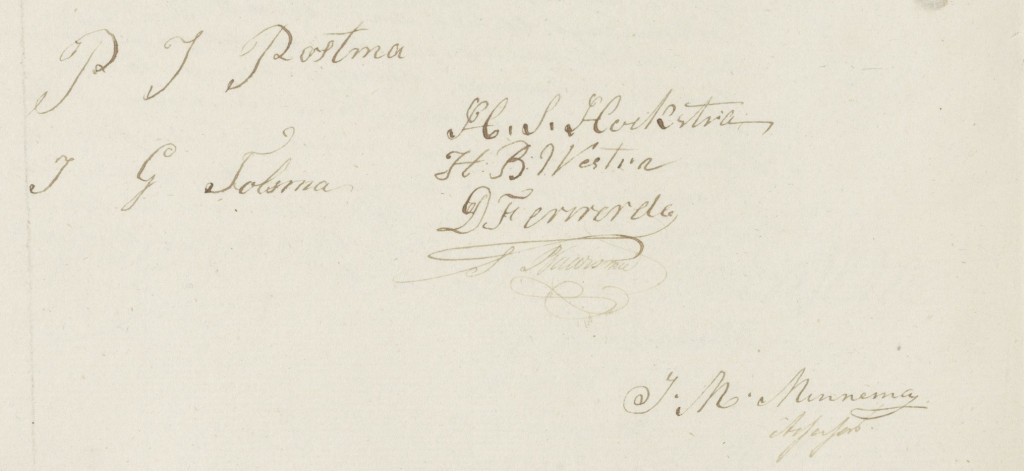 P J Postma
J G Tolsma
H. S. Hoekstra
H. B. Westra
D Ferwerda
S
J. M. Minnema
Assessor.